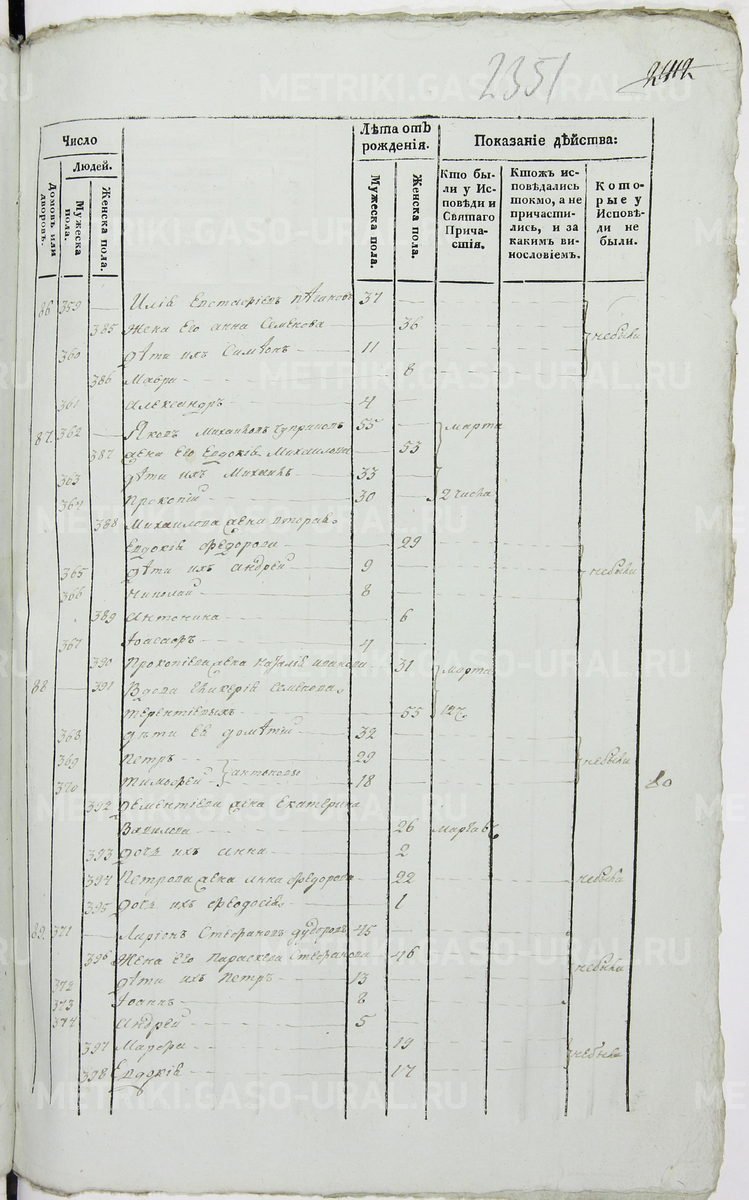 2351 2412
Число
Людей.
Домовъ или дворовъ.
Мужеска пола.
Женска пола.
Лѣта отъ рожденія.
Мужеска пола.
Женска пола.
Показаніе дѣйства:
Кто были у Исповѣди и Святаго Причастія.
Ктожъ исповѣдались токмо, а не причастились, и за какимъ винословіемъ.
Которые у Исповѣди не были.
86 359 Илія Евстафіевъ 37
385 Жена его Анна Семенова 36 небыли
360 Дѣти ихъ Симеонъ 11
386 Мавра 8
361 Александръ 4
87. 362 Яковъ Михайловъ Чуприновъ 55 марта
387 Жена его Евдокія Михайлова 53
363 Дѣти ихъ Михаилъ 33
364 Прокопій 30 2 числа
388 Михайлова жена вторая
Евдокія Федорова 29
365 Дѣти ихъ Андрей 9 небыли
366 Николай 8
389 Антонина 6
367 Іоасафъ 4
390 Прокопіева жена Наталія Иванова 31 марта
88 391 Вдова Гликерія Семенова
Терентіевыхъ 55 12 ч.
368 Дѣти ея Домѣтій 32
369 Петръ 29 небыли
370 Тимофей 18
392 Дементіева жена Екатерина
Вавилова 26 марта 6
393 Дочь ихъ Анна 2
394 Петрова жена Анна Федорова 22 небыли
395 Дочь ихъ Феодосія 1
89. 371 Ларіонъ Стефановъ Дудоровъ 45
396 Жена его Параскева Стефанова 46 небыли
372 Дѣти ихъ Петръ 13
373 Іоаннъ 8
374 Андрей 5
397 19 небыли
398 Евдокія 17
METRIKI.GASO-URAL.RU